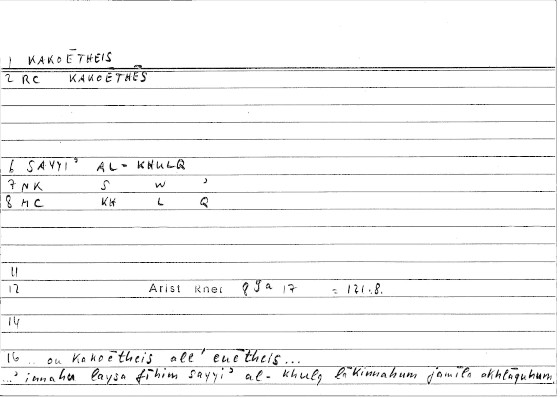 1 KAKOĒTHEIS
2 RC KAKOĒTHĒS
6 SAYYIʾ AL-KHULQ
7 NK S W ʾ
8 MC KH L Q
11
12 Arist Rhet 89a 17 = 121.8.
14
16 .. ou Kakoētheis all' euētheis...
...ʾinnahu laysa fīhim sayyiʾ al-khulq lākinnahum jamīla akhlāquhum